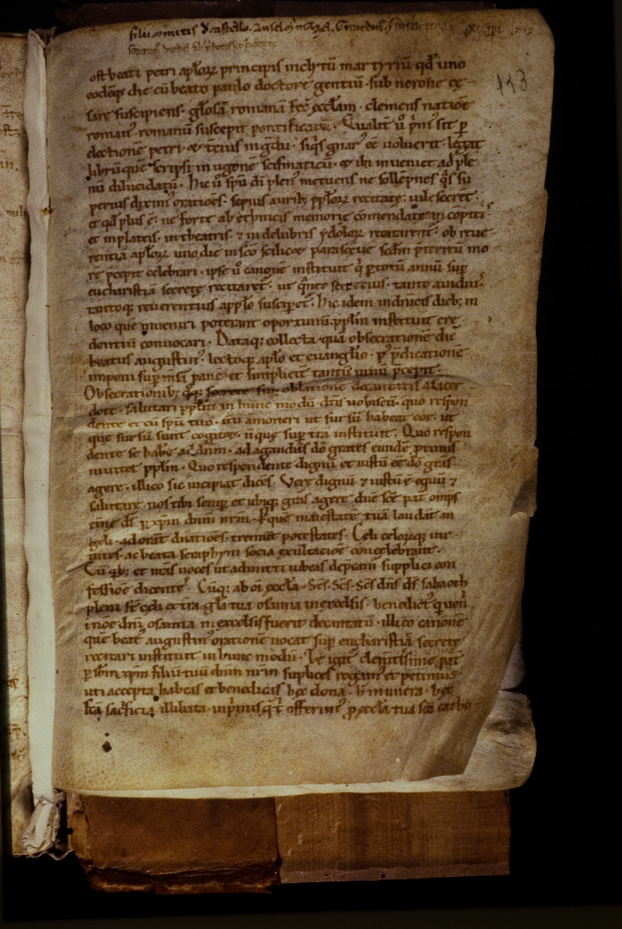 filii comitis d castello. Anselm
133
ost beati petri aplorū principis inclytū martyriū qd uno
eodemq; die cū beato paulo doctore gentiū sub nerone
sare suscipiens gl'osā romanā ecclam. clemens natiōe
roman' romanū suscepit pontificatū. Qualit ū pm' sit p
electionē petri & tcius in gdu. siqs gnar' ee uoluerit legat
librū que scripsi in ugonē scismaticū. & ibi inueniet ad ple
nū dilucidatū. hic ū spū di plen' metuens ne sollēpnes
orationes. sepius aurib; pplorū recitate. uilesceret.
et qd plus ē. ne forte ab ethnicis memorie comendate in
et in plateis. in theatris. & in delubris ydolorū recitarent. ob reue
rentiā aplorū. uno die in sco scilicet parasceue scdm
re pcepit celebrari. ipse ū canonē instituit q p totū annū sup
eucharistiā secrete recitaret. ut qnto secretius. tanto auidius.
tantoq; reuerentius applo susciperet. hic idem indiuicis dieb; in
loco que pueniri poterant oportunū pplm instituit cre
dentiū conuocari. Dataq; collecta quā obsecrationē dic
beatus augustin'. lectoq; aplo et euanglio. p pdicationē
imponi sup mensā panē et simplicit tantū uinū pcepit.
Obsecrationib; secrete sup oblationē decantatis
dote. salutari pplm in hunc modū dns uobiscū. quo respon
dente et cū spū tuo. itū amoneri ut sursū habeat cor. ut
que sursū sunt cogitet. n que sup trā instituit. Quo respon
dente se habere ad dnm. ad agendas dō grates eundē protinus
inuitet pplm. Quo respondente dignū et iustū ee dō gras
agere. illico sic incipiat dicēs. Vere dignū & iustū ē equū &
salutare. nos tibi semp et ubiq; gras agere dne scē pat omps
etne ds p xpm dnm nrm. P que maiestatē tuā laudāt an
geli. adorāt dnatiōes. tremūt potestates. Celi celorūq; uir
tutes. ac beata seraphyn socia exultatiōe concelebrant.
Cū qb; et nras uoces ut admitti iubeas depcm supplici con
fessiōe dicente. Cūq; ab oi eccla. Scs. Scs. Scs dns ds sabaoth
pleni st celi et tra gla tua osanna in excelsis. benedict' que uen
in noe dni. osanna in excelsis fuerit decantatū. illico canonē
que beat' augustin' orationē uocat sup eucharistiā secrete
recitari instituit in hunc modū. Te igit' clemtissime pat
p ihm xpm filiū tuū dnm nrm suplices rogam' et petimus
uti accepta habeas et benedicas hec dona. h munera. hec
scā sacficia illibata. in pmis q t offerim' p eccla tua scā catho